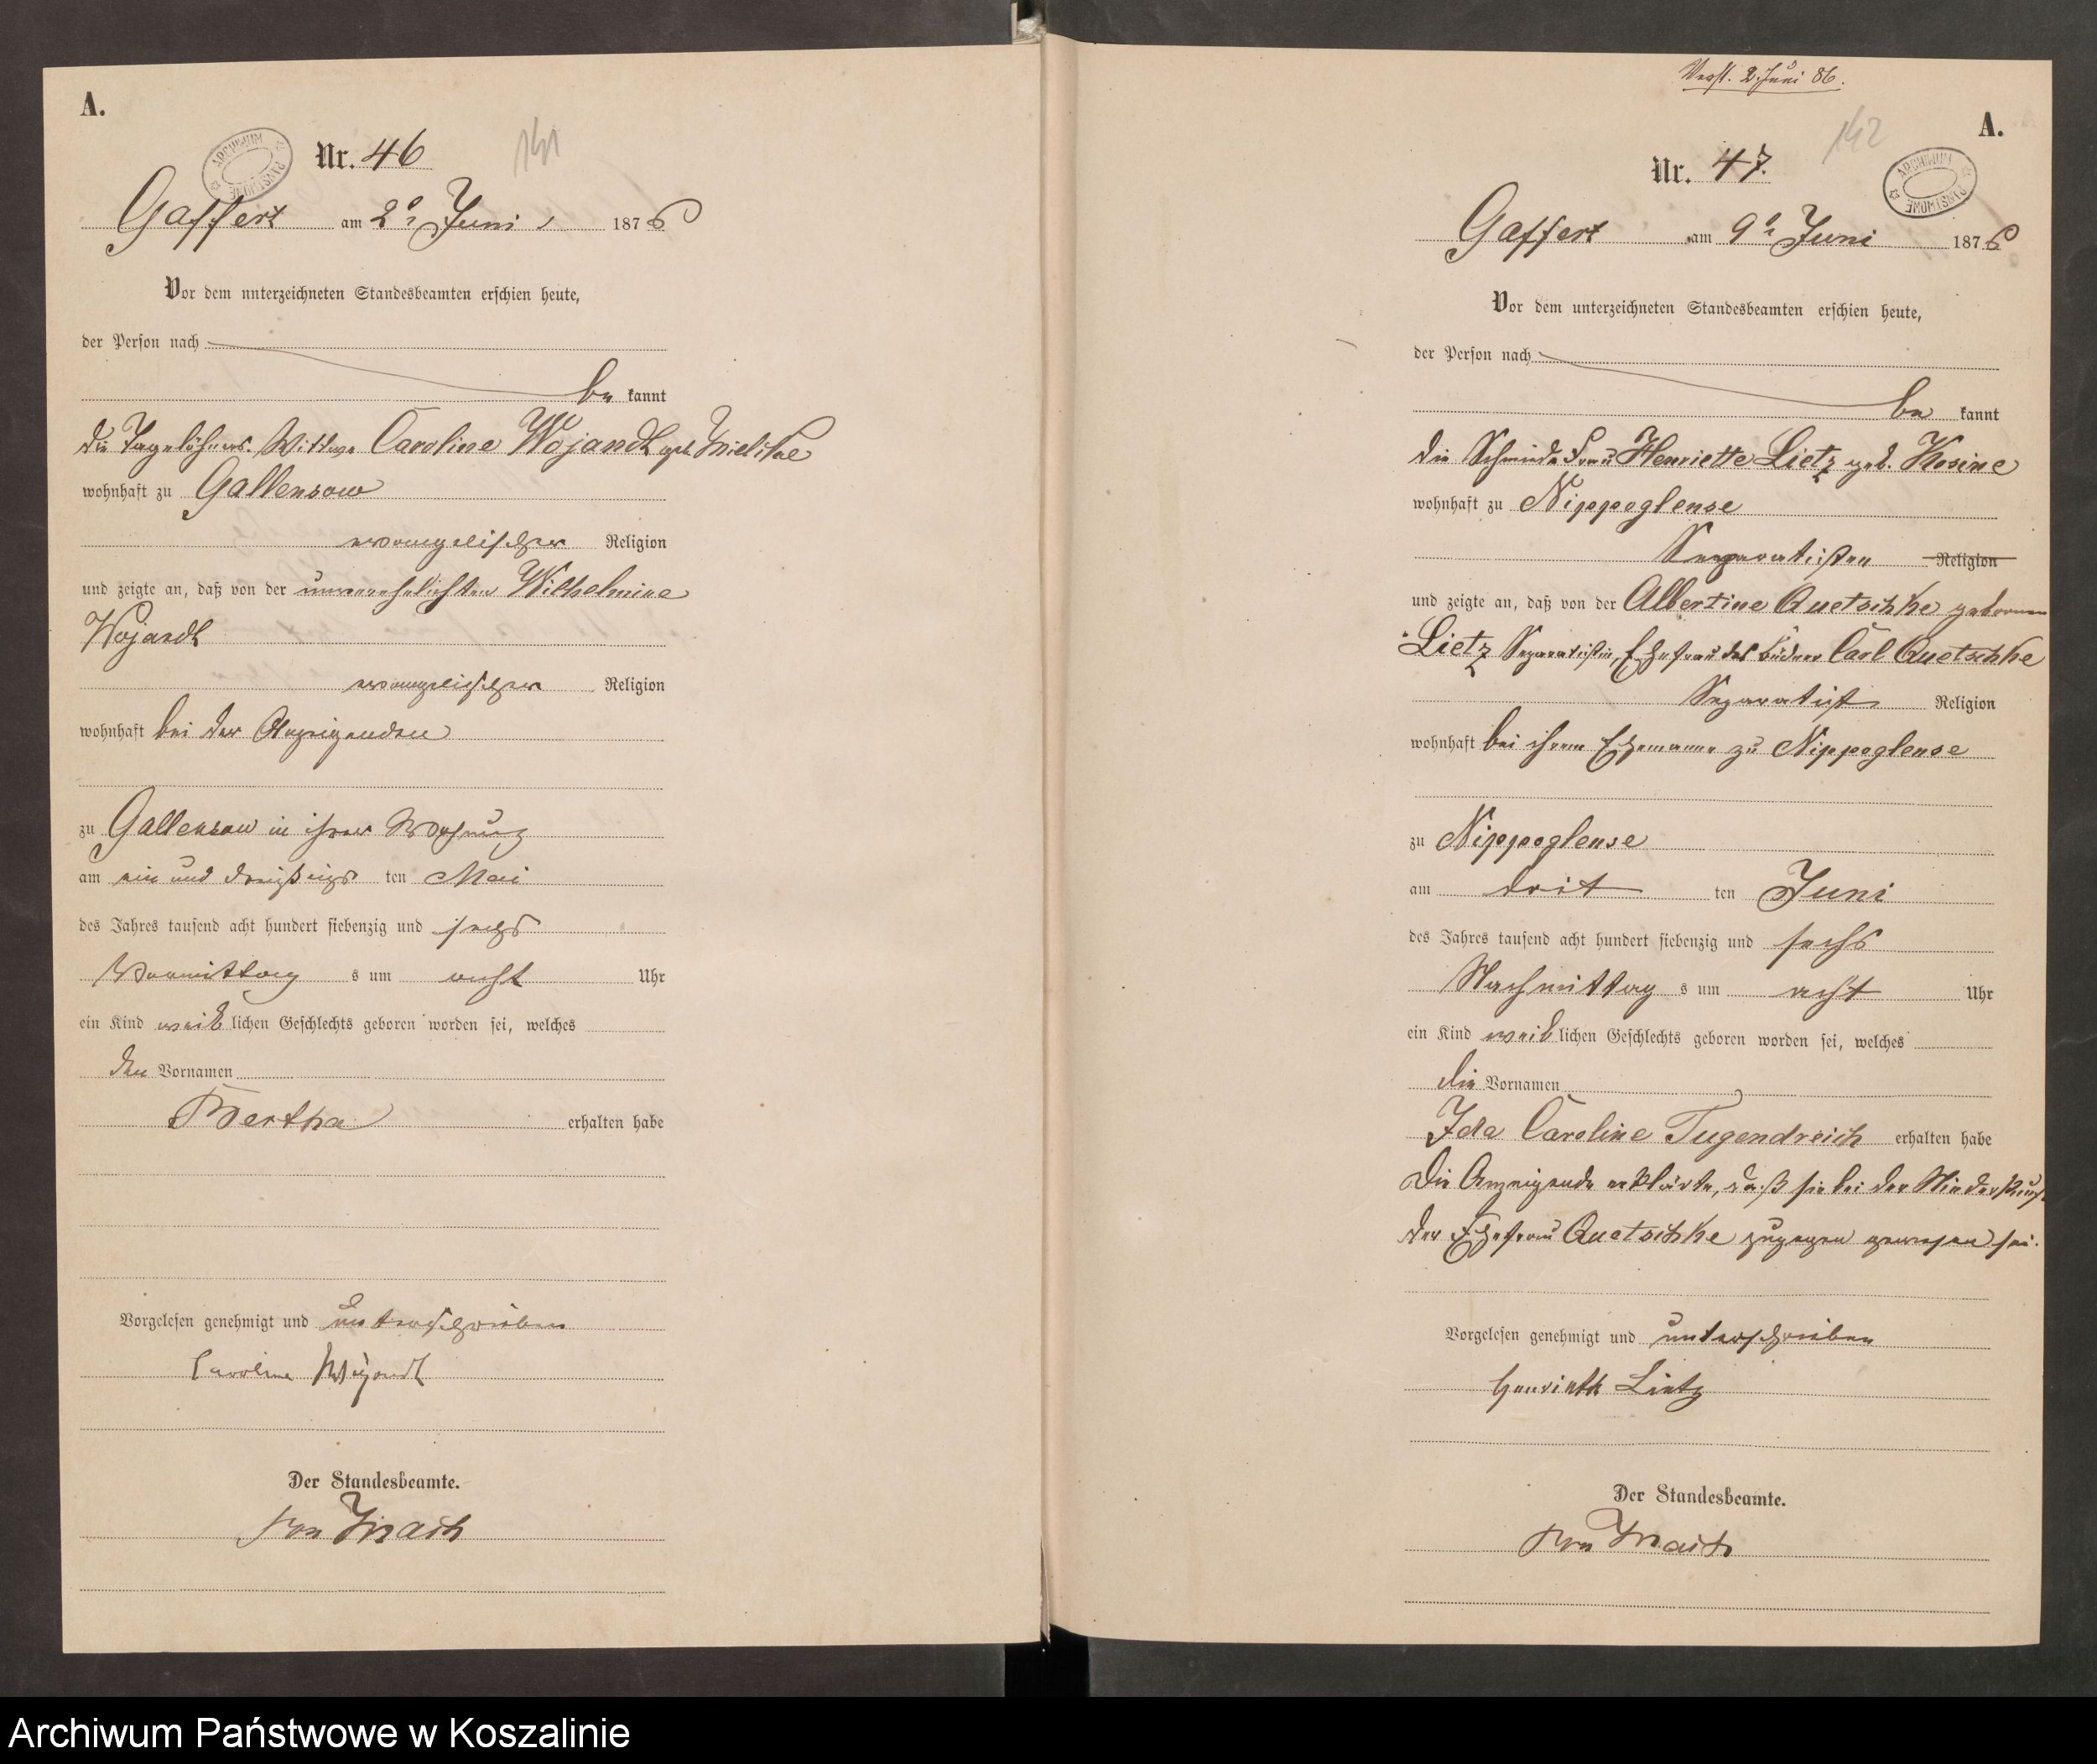 A.
Nr. 46
141
ARCHIWUM PAŃSTWOWE
Gaffert am 2n Juni 1876
Vor dem unterzeichneten Standesbeamten erschien heute,
der Person nach
be kannt
die Tagelöhner-Wittwe Caroline Wojandt geb.
wohnhaft zu Gallensow
evangelischer Religion
und zeigte an, daß von der unverehelichten Wilhelmine
Wojandt
evangelischer Religion
wohnhaft bei der Anzeigenden
zu Gallensow in ihrer Wohnung
am ein und dreißigs ten Mai
des Jahres tausend acht hundert siebenzig und sechs
Vormittag s um acht Uhr
ein Kind weib lichen Geschlechts geboren worden sei, welches
den Vornamen
Bertha erhalten habe
Vorgelesen genehmigt und unterschrieben
Caroline Wojandt
Der Standesbeamte.
von Mach
Verst. 2. Juni 86.
A.
142
Nr. 47.
ARCHIWUM PAŃSTWOWE
Gaffert am 9n Juni 1876
Vor dem unterzeichneten Standesbeamten erschien heute,
der Person nach
be kannt
die Schmiede Frau Henriette Lietz geb. Kosine
wohnhaft zu Nippoglense
Separatisten Religion
und zeigte an, daß von der Albertine Quetschke geborenen
Lietz Separatistin, Ehefrau des Büdner Carl Quetschke
Separatist Religion
wohnhaft bei ihrem Ehemanne zu Nippoglense
zu Nippoglense
am drit ten Juni
des Jahres tausend acht hundert siebenzig und sechs
Nachmittag s um acht Uhr
ein Kind weib lichen Geschlechts geboren worden sei, welches
die Vornamen
Ida Caroline Tugendreich erhalten habe
Die Anzeigende erklärte, daß sie bei der Niederkunft
der Ehefrau Quetschke zugegen gewesen sei.
Vorgelesen genehmigt und unterschrieben
Henriette Lietz
Der Standesbeamte.
von Mach
Archiwum Państwowe w Koszalinie